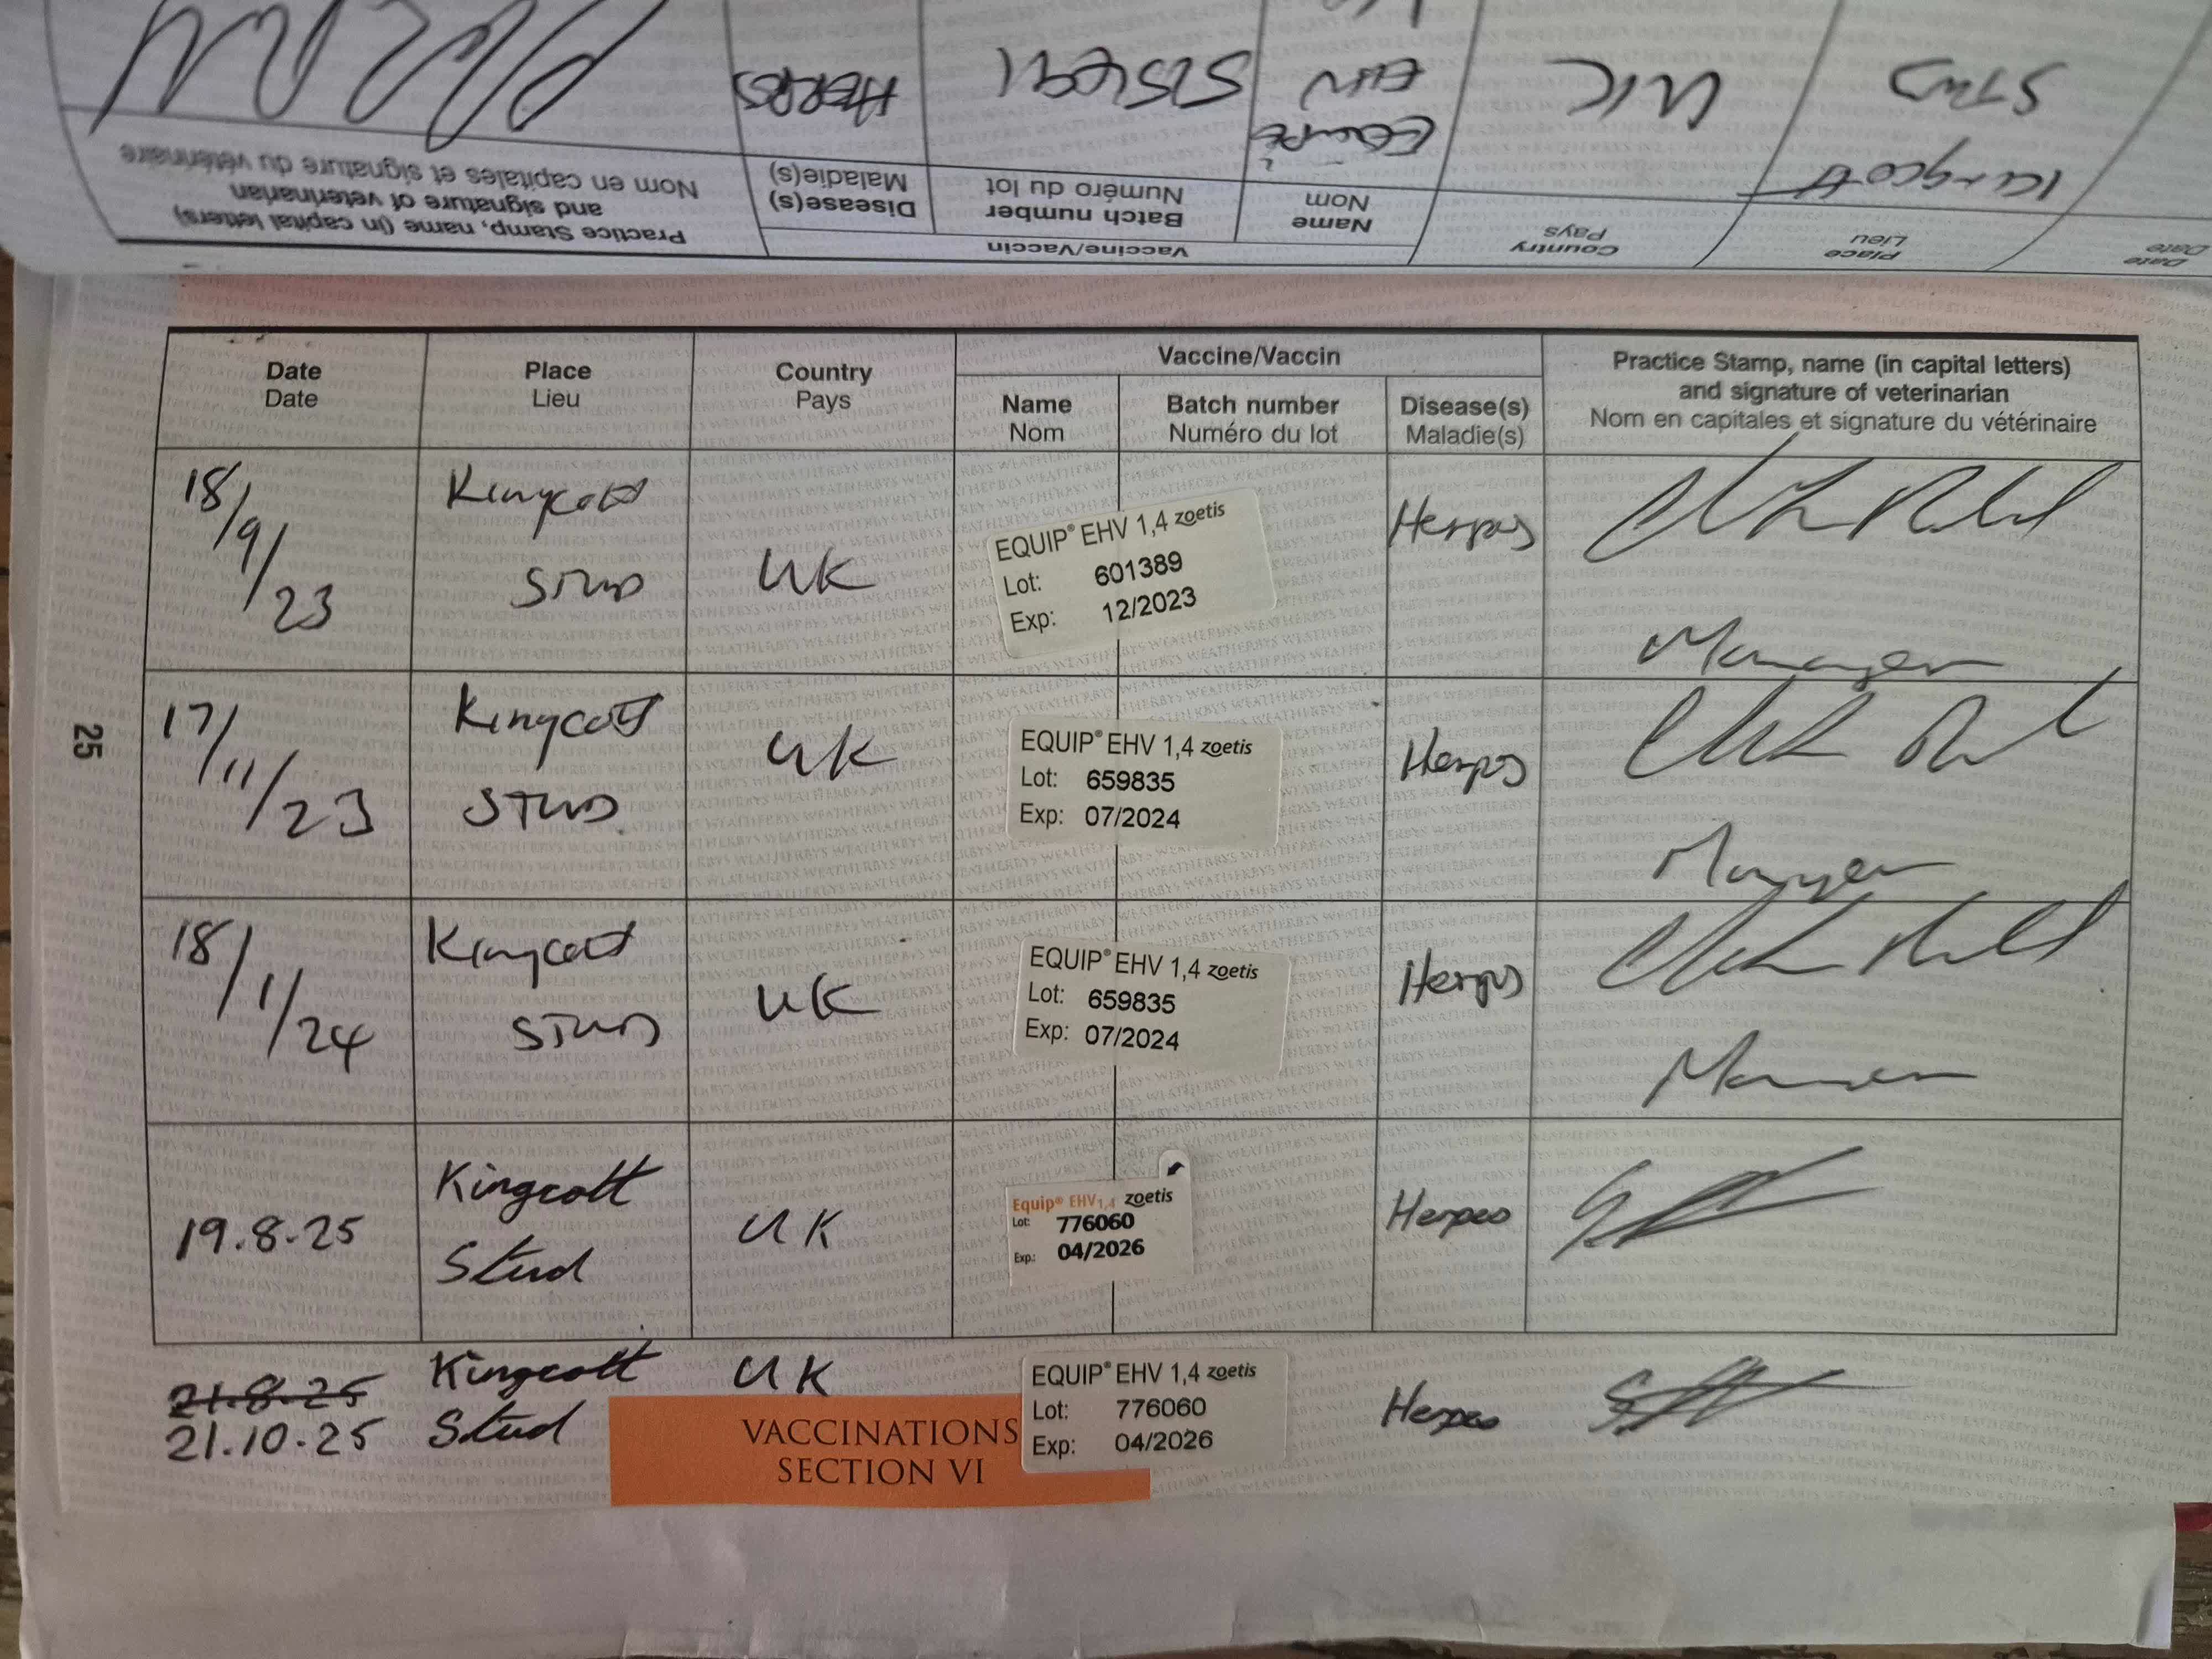 Practice Stamp, name (in capital letters)
and signature of veterinarian
Nom en capitales et signature du vétérinaire
Vaccine/Vaccin
Disease(s)
Maladie(s)
Batch number
Numéro du lot
Name
Nom
Country
Pays
Place
Lieu
Date
Date
HERPES
EQUIP
EHV
UK
Kingcott
STUD
Date
Date
Place
Lieu
Country
Pays
Vaccine/Vaccin
Name
Nom
Batch number
Numéro du lot
Disease(s)
Maladie(s)
Practice Stamp, name (in capital letters)
and signature of veterinarian
Nom en capitales et signature du vétérinaire
18/9/23
Kingcott
STUD
UK
EQUIP® EHV 1,4 zoetis
Lot: 601389
Exp: 12/2023
Herpes
Manager
17/11/23
Kingcott
STUD
UK
EQUIP® EHV 1,4 zoetis
Lot: 659835
Exp: 07/2024
Herpes
Manager
18/1/24
Kingcott
STUD
UK
EQUIP® EHV 1,4 zoetis
Lot: 659835
Exp: 07/2024
Herpes
Manager
19.8.25
Kingcott
Stud
UK
Equip® EHV1,4 zoetis
Lot: 776060
Exp.: 04/2026
Herpes
21.8.25
21.10.25
Kingcott
Stud
UK
EQUIP® EHV 1,4 zoetis
Lot: 776060
Exp: 04/2026
Herpes
VACCINATIONS
SECTION VI
25